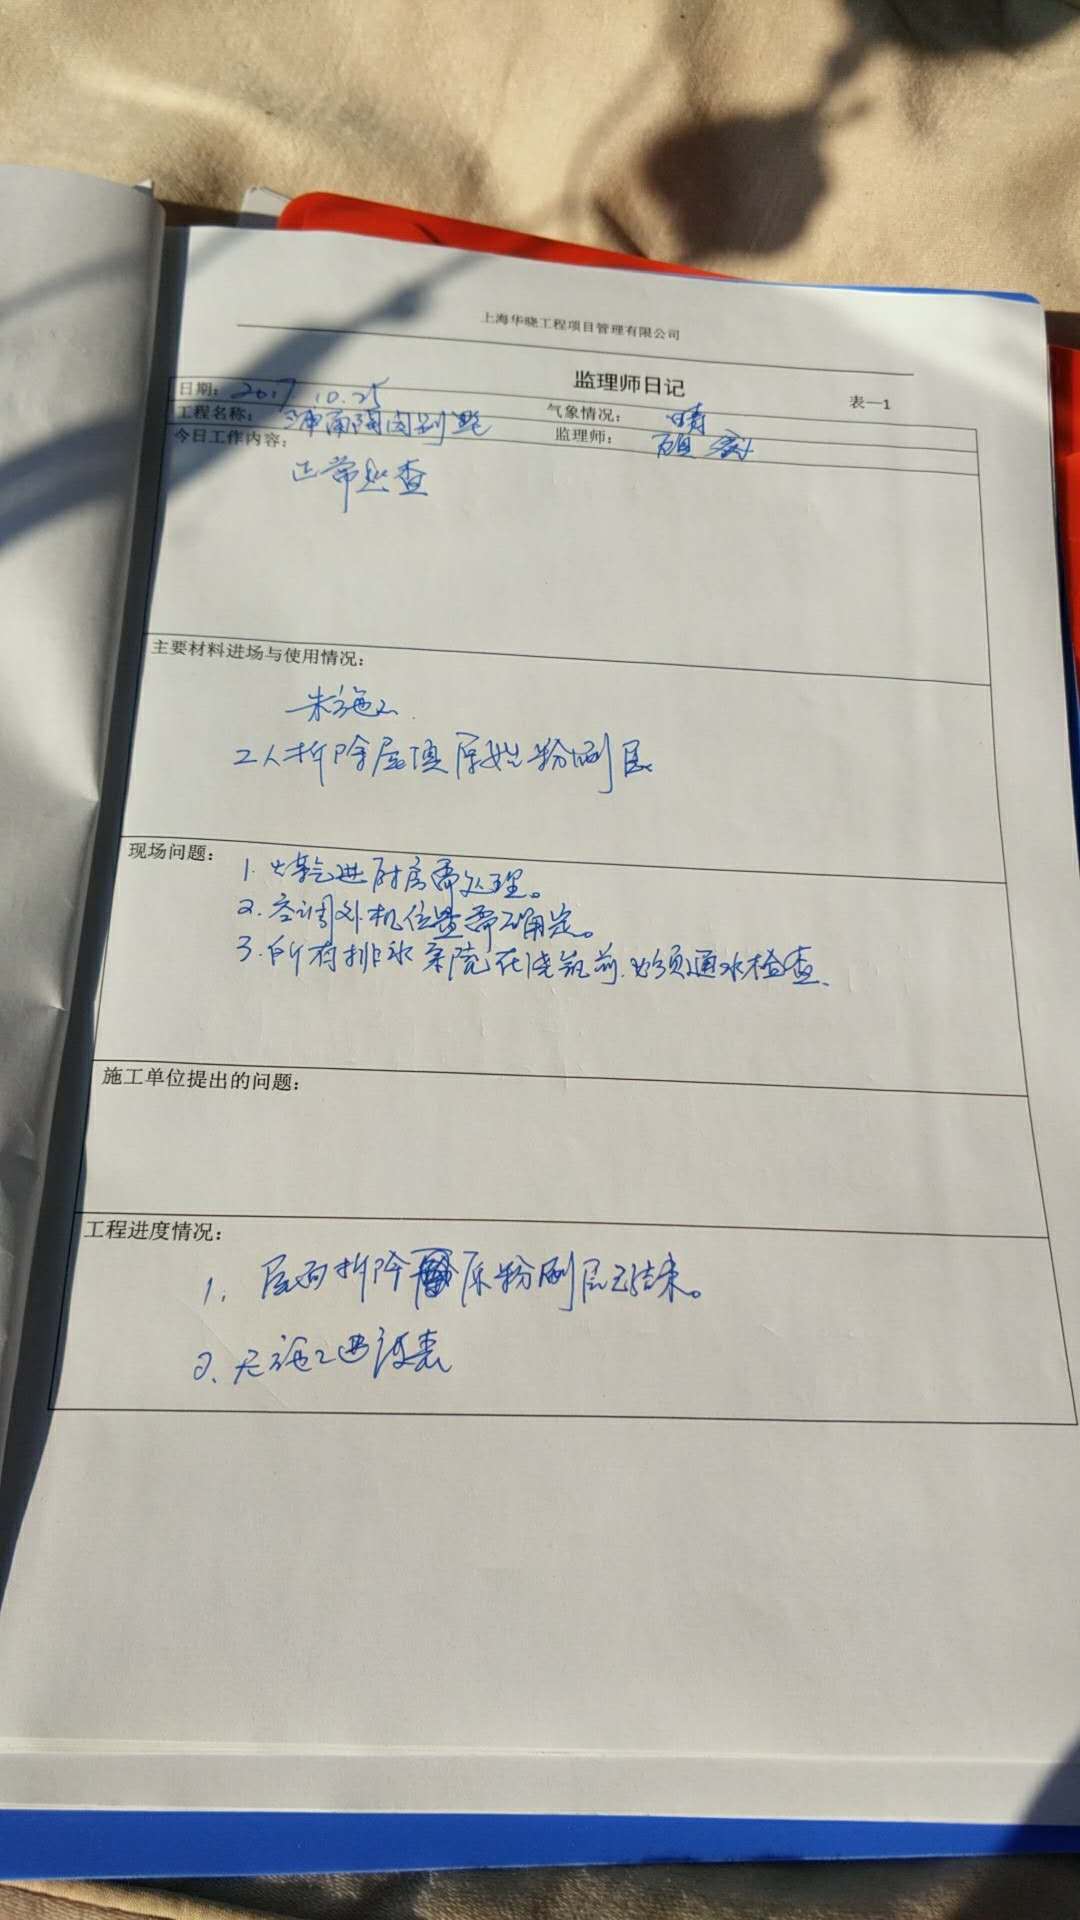 上海华晓工程项目管理有限公司
监理师日记
表一1
日期：2017.10.25
气象情况：晴
工程名称：别墅
监理师：
今日工作内容：
正常巡查
主要材料进场与使用情况：
未施工
2人拆除屋顶原始粉刷层
现场问题：
1.进厨房需处理。
2.空调外机位置需确定。
3.所有排水系统在浇筑前.必须通水检查.
施工单位提出的问题：
工程进度情况：
1.屋面拆除原粉刷层已结束。
2.无施工进度表